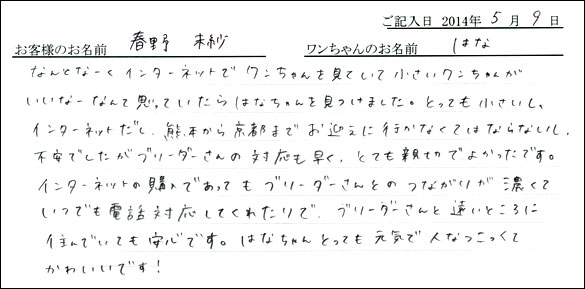 ご記入日 2014年 5月 9日
お客様のお名前 春野 未紗 ワンちゃんのお名前 はな
なんとなーくインターネットでワンちゃんを見ていて小さいワンちゃんが
いいなーなんて思っていたらはなちゃんを見つけました。とっても小さいし、
インターネットだし、熊本から京都までお迎えに行かなくてはならないし、
不安でしたがブリーダーさんの対応も早く、とても親切でよかったです。
インターネットの購入であってもブリーダーさんとのつながりが濃くて
いつでも電話対応してくれたりで、ブリーダーさんと遠いところに
住んでいても安心です。はなちゃんとっても元気で人なつこっくて
かわいいです!